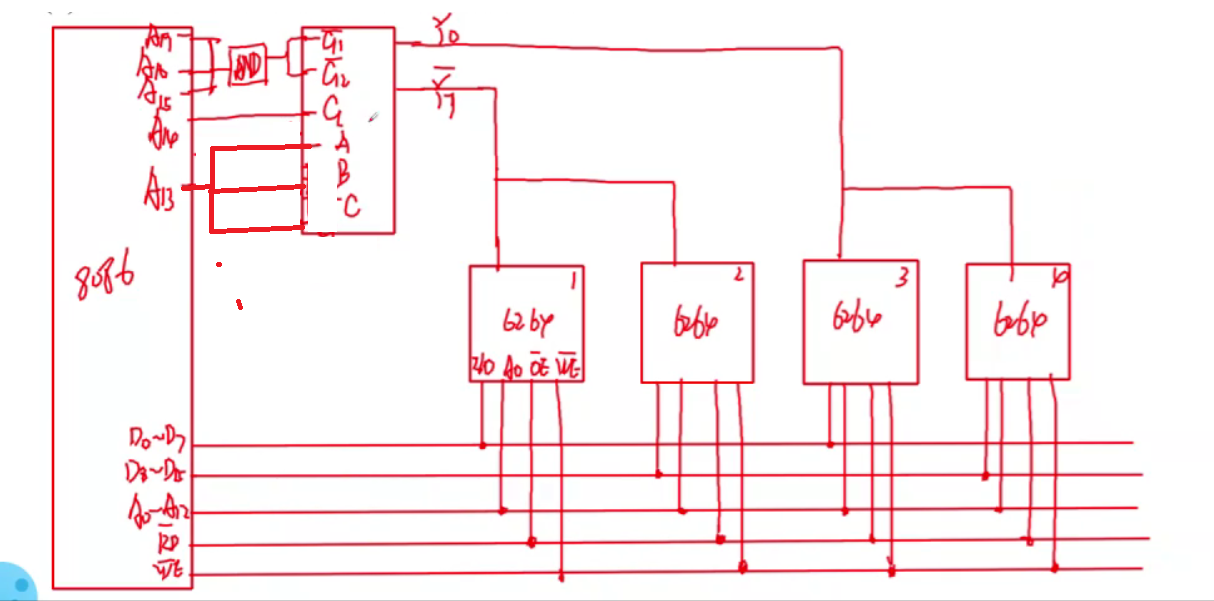 A17
A16
A15
A14
A13
8086
AND
G̅1
G̅12
G
A
B
C
Y̅0
Y̅7
1
6264
I/O A0 O̅E̅ W̅E̅
2
6264
3
6264
4
6264
D0~D7
D8~D15
A0~A12
R̅D̅
W̅E̅